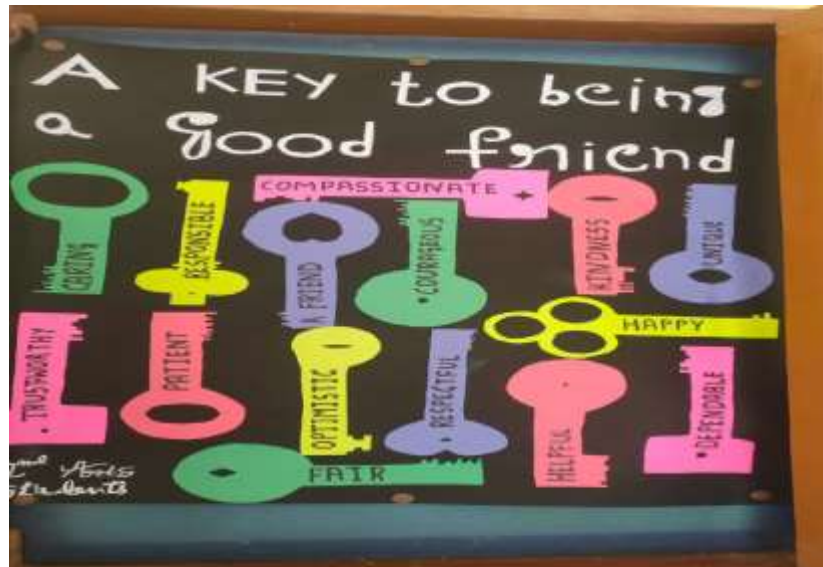 A KEY to being
a good friend
COMPASSIONATE
CARING
RESPONSIBLE
A FRIEND
COURAGEOUS
KINDNESS
UNIQUE
HAPPY
TRUSTWORTHY
PATIENT
OPTIMISTIC
RESPECTFUL
HELPFUL
DEPENDABLE
FAIR
students